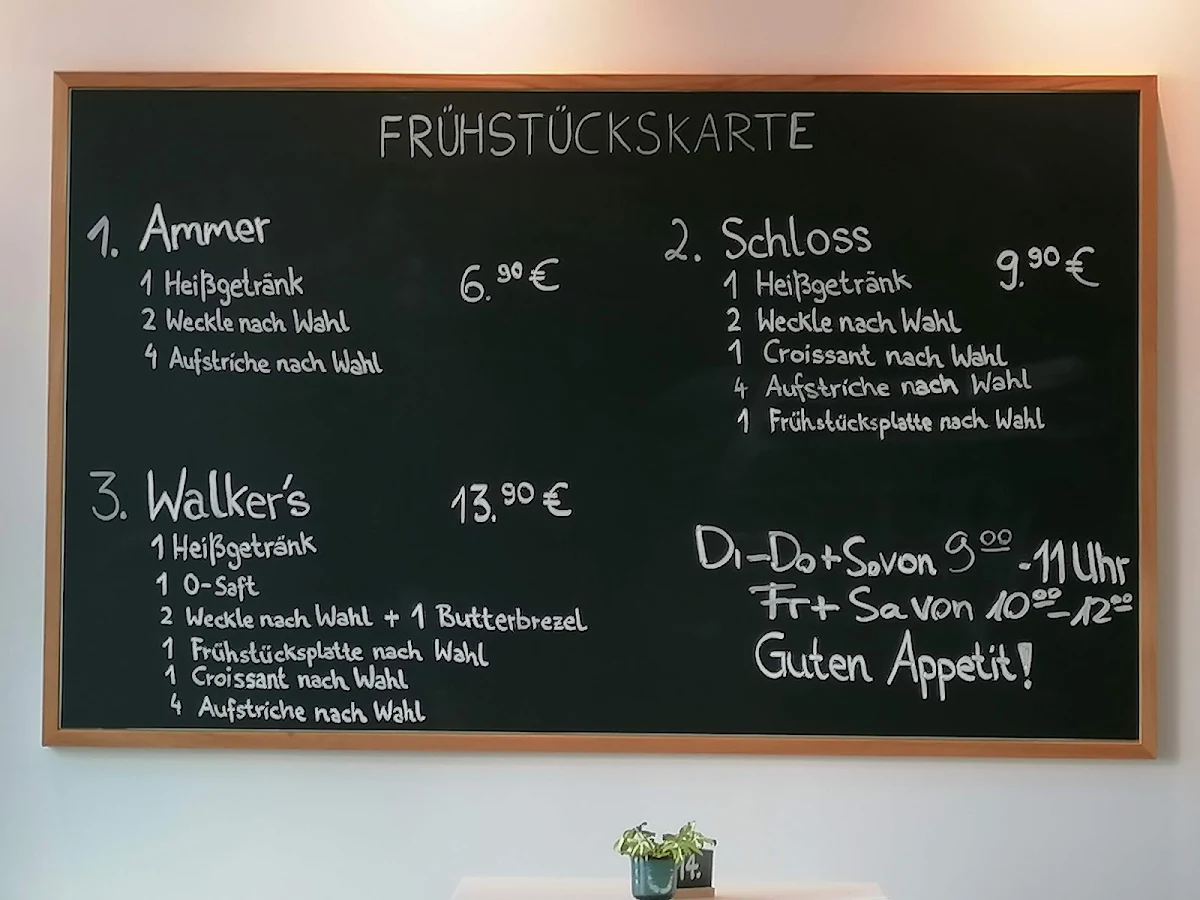 FRÜHSTÜCKSKARTE
1. Ammer
6.90 €
1 Heißgetränk
2 Weckle nach Wahl
4 Aufstriche nach Wahl
2. Schloss
9.90 €
1 Heißgetränk
2 Weckle nach Wahl
1 Croissant nach Wahl
4 Aufstriche nach Wahl
1 Frühstücksplatte nach Wahl
3. Walker's
13.90 €
1 Heißgetränk
1 O-Saft
2 Weckle nach Wahl + 1 Butterbrezel
1 Frühstücksplatte nach Wahl
1 Croissant nach Wahl
4 Aufstriche nach Wahl
Di-Do+So von 9 00 -11 Uhr
Fr+ Sa von 10 00-12 00
Guten Appetit!
14.